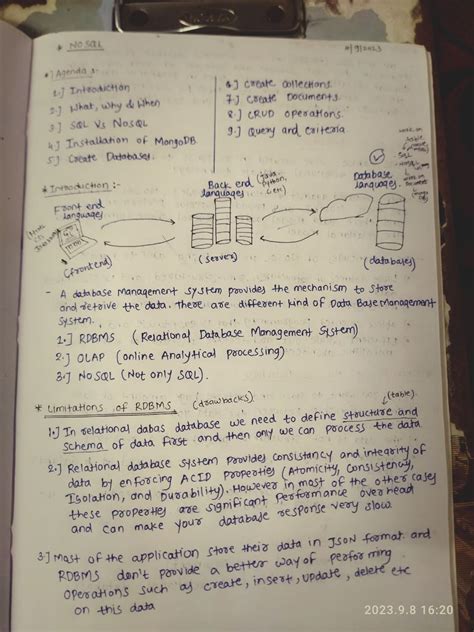 * NoSQL
*] Agenda :-
1.] Introduction
2.] What, Why & When
3.] SQL Vs NoSQL
4.] Installation of MongoDB
5.] Create Databases.
6.] Create collections
7.] Create Documents.
8.] CRUD operations.
9.] Query and criteria
* Introduction :-
Front end
languages
Back end
languages
(Java,
Python,
Database
languages.
SQL
(frontend)
(server)
(databases)
- A database Management system provides the mechanism to store
and retrive the data. There are different kind of Data Base Management
System.
1.] RDBMS (Relational Database Management System)
2.] OLAP (online Analytical processing)
3.] NoSQL (Not only SQL).
* Limitations of RDBMS (drawbacks)
(table)
1.] In relational dabas database we need to define structure and
schema of data first and then only we can process the data
2.] Relational database system provides consistancy and integrity of
data by enforcing ACID properties (Atomicity, Consistency,
Isolation, and Durability). However in most of the other cases
these properties are significant performance overhead
and can make your database response very slow
3.] Most of the application store their data in JSON format and
RDBMS don't provide a better way of performing
operations such as create, insert, update, delete etc
on this data
2023.9.8 16:20